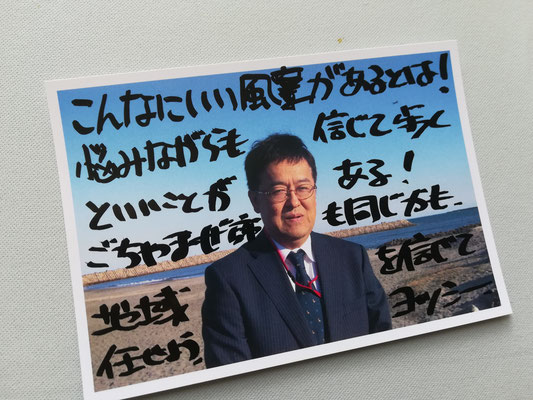 こんなにいい風景があるとは!
悩みながらも 信じて歩く
といいことが ある!
ごちゃまぜ席 も同じ方も、
地域 を信じて
任せよう。 ヨッシー